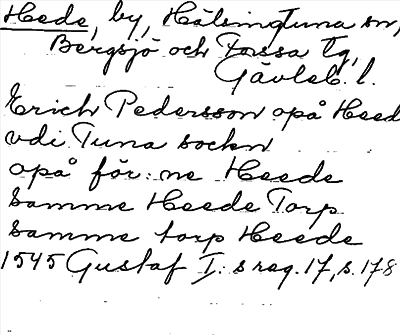 Heede, by, Hälsingtuna sn,
Bergsjö och Forssa tg,
Gävleb. l.
Erich Pedersson opå Heed
vdi Tuna sockn
opå för: ne Heede
Samme Heede Torp
Samme torp Heede
1545 Gustaf I: s reg. 17, s. 178